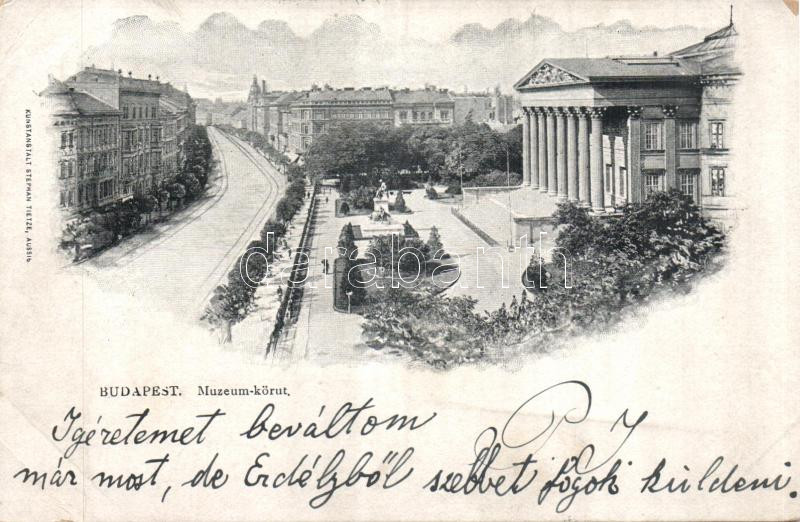 KUNSTANSTALT STEPHAN TIETZE, AUSSIG
darabanth
BUDAPEST. Muzeum-körut.
Igéretemet beváltom
már most, de Erdélyből szebbet fogok küldeni.